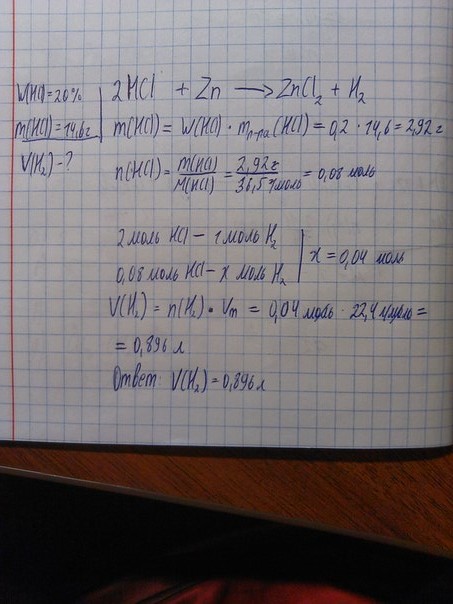 W(HCl)=20%
m(HCl)=14,6г
V(H₂)-?
2HCl + Zn → ZnCl₂ + H₂
m(HCl) = W(HCl) · m р-ра (HCl) = 0,2 · 14,6 = 2,92 г
n(HCl) = m(HCl)/M(HCl) = 2,92 г/36,5 г/моль = 0,08 моль
2 моль HCl – 1 моль H₂
0,08 моль HCl – x моль H₂
x = 0,04 моль
V(H₂) = n(H₂) · Vm = 0,04 моль · 22,4 л/моль =
= 0,896 л
Ответ: V(H₂) = 0,896 л